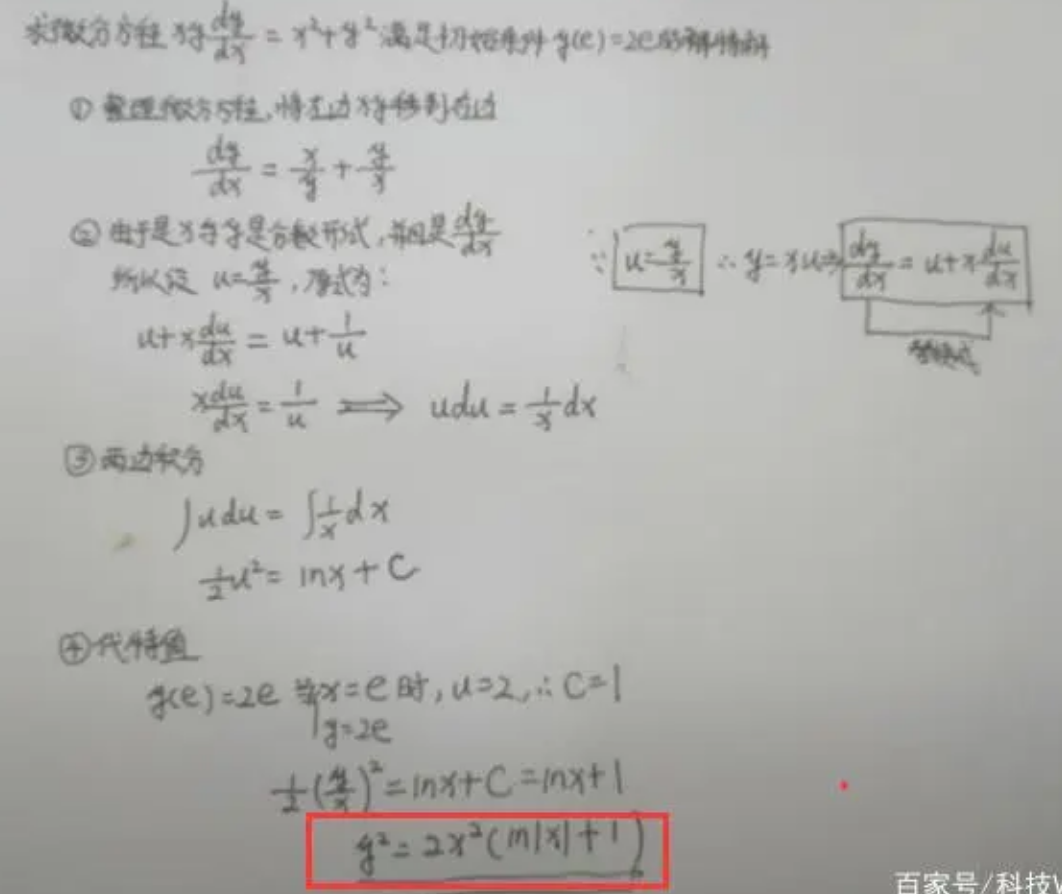 求微分方程 xy dy/dx = x²+y² 满足初始条件 y(e)=2e的特解
① 整理微分方程,将左边xy移到右边
dy/dx = x/y + y/x
② 由于是x与y是分数形式,并且是 dy/dx
所以设 u=y/x , 原式为:
∵ u=y/x ∴ y=xu⇒ dy/dx = u+x du/dx
替换成
u+x du/dx = u+ 1/u
x du/dx = 1/u ⟹ udu = 1/x dx
③ 两边积分
∫udu = ∫1/x dx
1/2 u² = lnx + C
④ 代特值
y(e)=2e 当x=e时, u=2, ∴ C=1
y=2e
1/2 (y/x)² = lnx+C = lnx+1
y² = 2x²(ln|x|+1)
百家号/科技